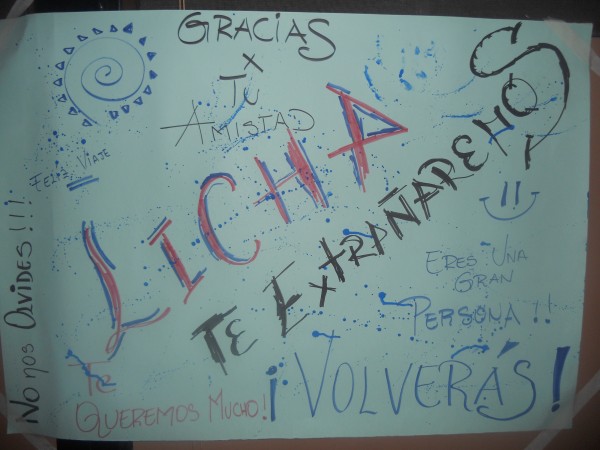 GRACIAS
X
TU
AMISTAD
FELIZ VIAJE
LICHA
TE EXTRAÑAREMOS
ERES UNA
GRAN
PERSONA!!
TE
QUEREMOS MUCHO!
¡VOLVERÁS!
NO NOS OLVIDES!!!